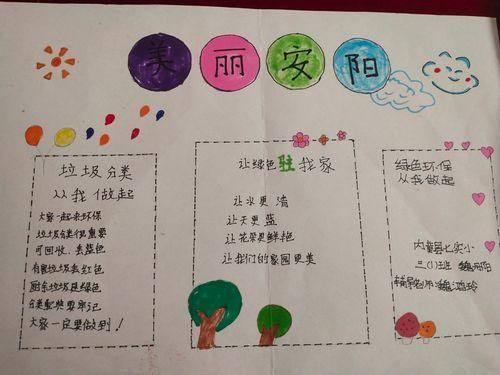 美丽安阳
垃圾分类
从我做起
大家一起来环保
垃圾分类很重要
可回收，丢蓝色
有害垃圾丢红色
厨余垃圾是绿色
分类配装要牢记
大家一定要做到！
让绿色驻我家
让水更清
让天更蓝
让花朵更鲜艳
让我们的家园更美
绿色环保
从我做起
内黄县七实小
三(1)班
辅导老师